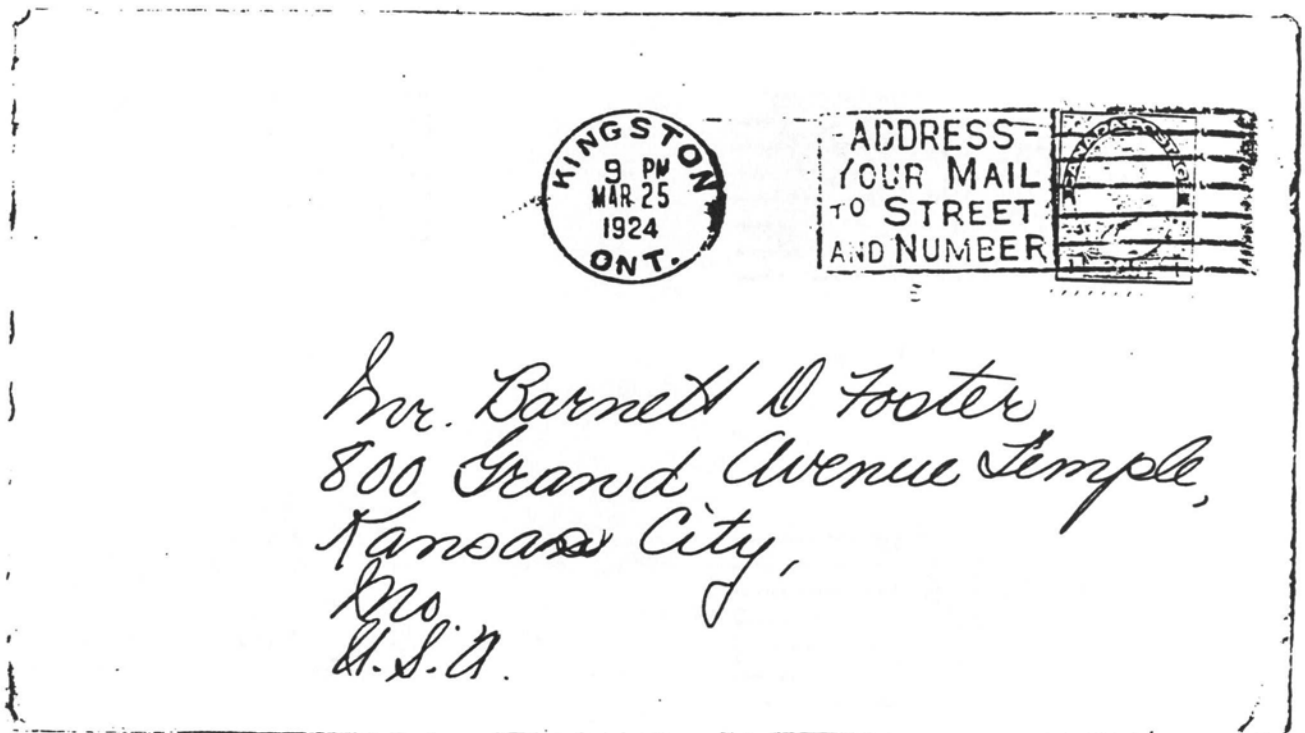 KINGSTON
9 PM
MAR 25
1924
ONT.
-ADDRESS-
YOUR MAIL
TO STREET
AND NUMBER
Mr. Barnett D Foster
800 Grand Avenue Temple,
Kansas City,
Mo.
U.S.A.